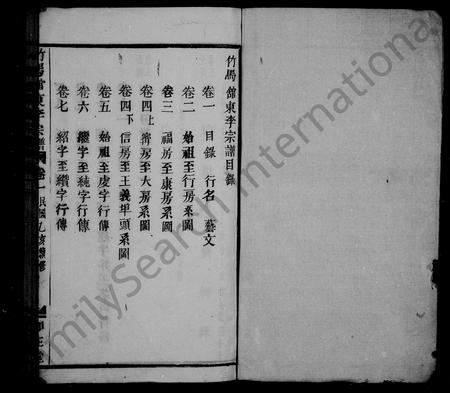 竹馬館東李宗譜目錄
卷一 目錄 行名 藝文
卷二 始祖至行房系圖
卷三 福房至康房系圖
卷四上 壽房至大房系圖
卷四下 信房至王義埠頭系圖
卷五 始祖至虔字行傳
卷六 繼字至純字行傳
卷七 紹字至纘字行傳
竹馬館東李宗譜 卷一 民國乙亥續修
milySearch International